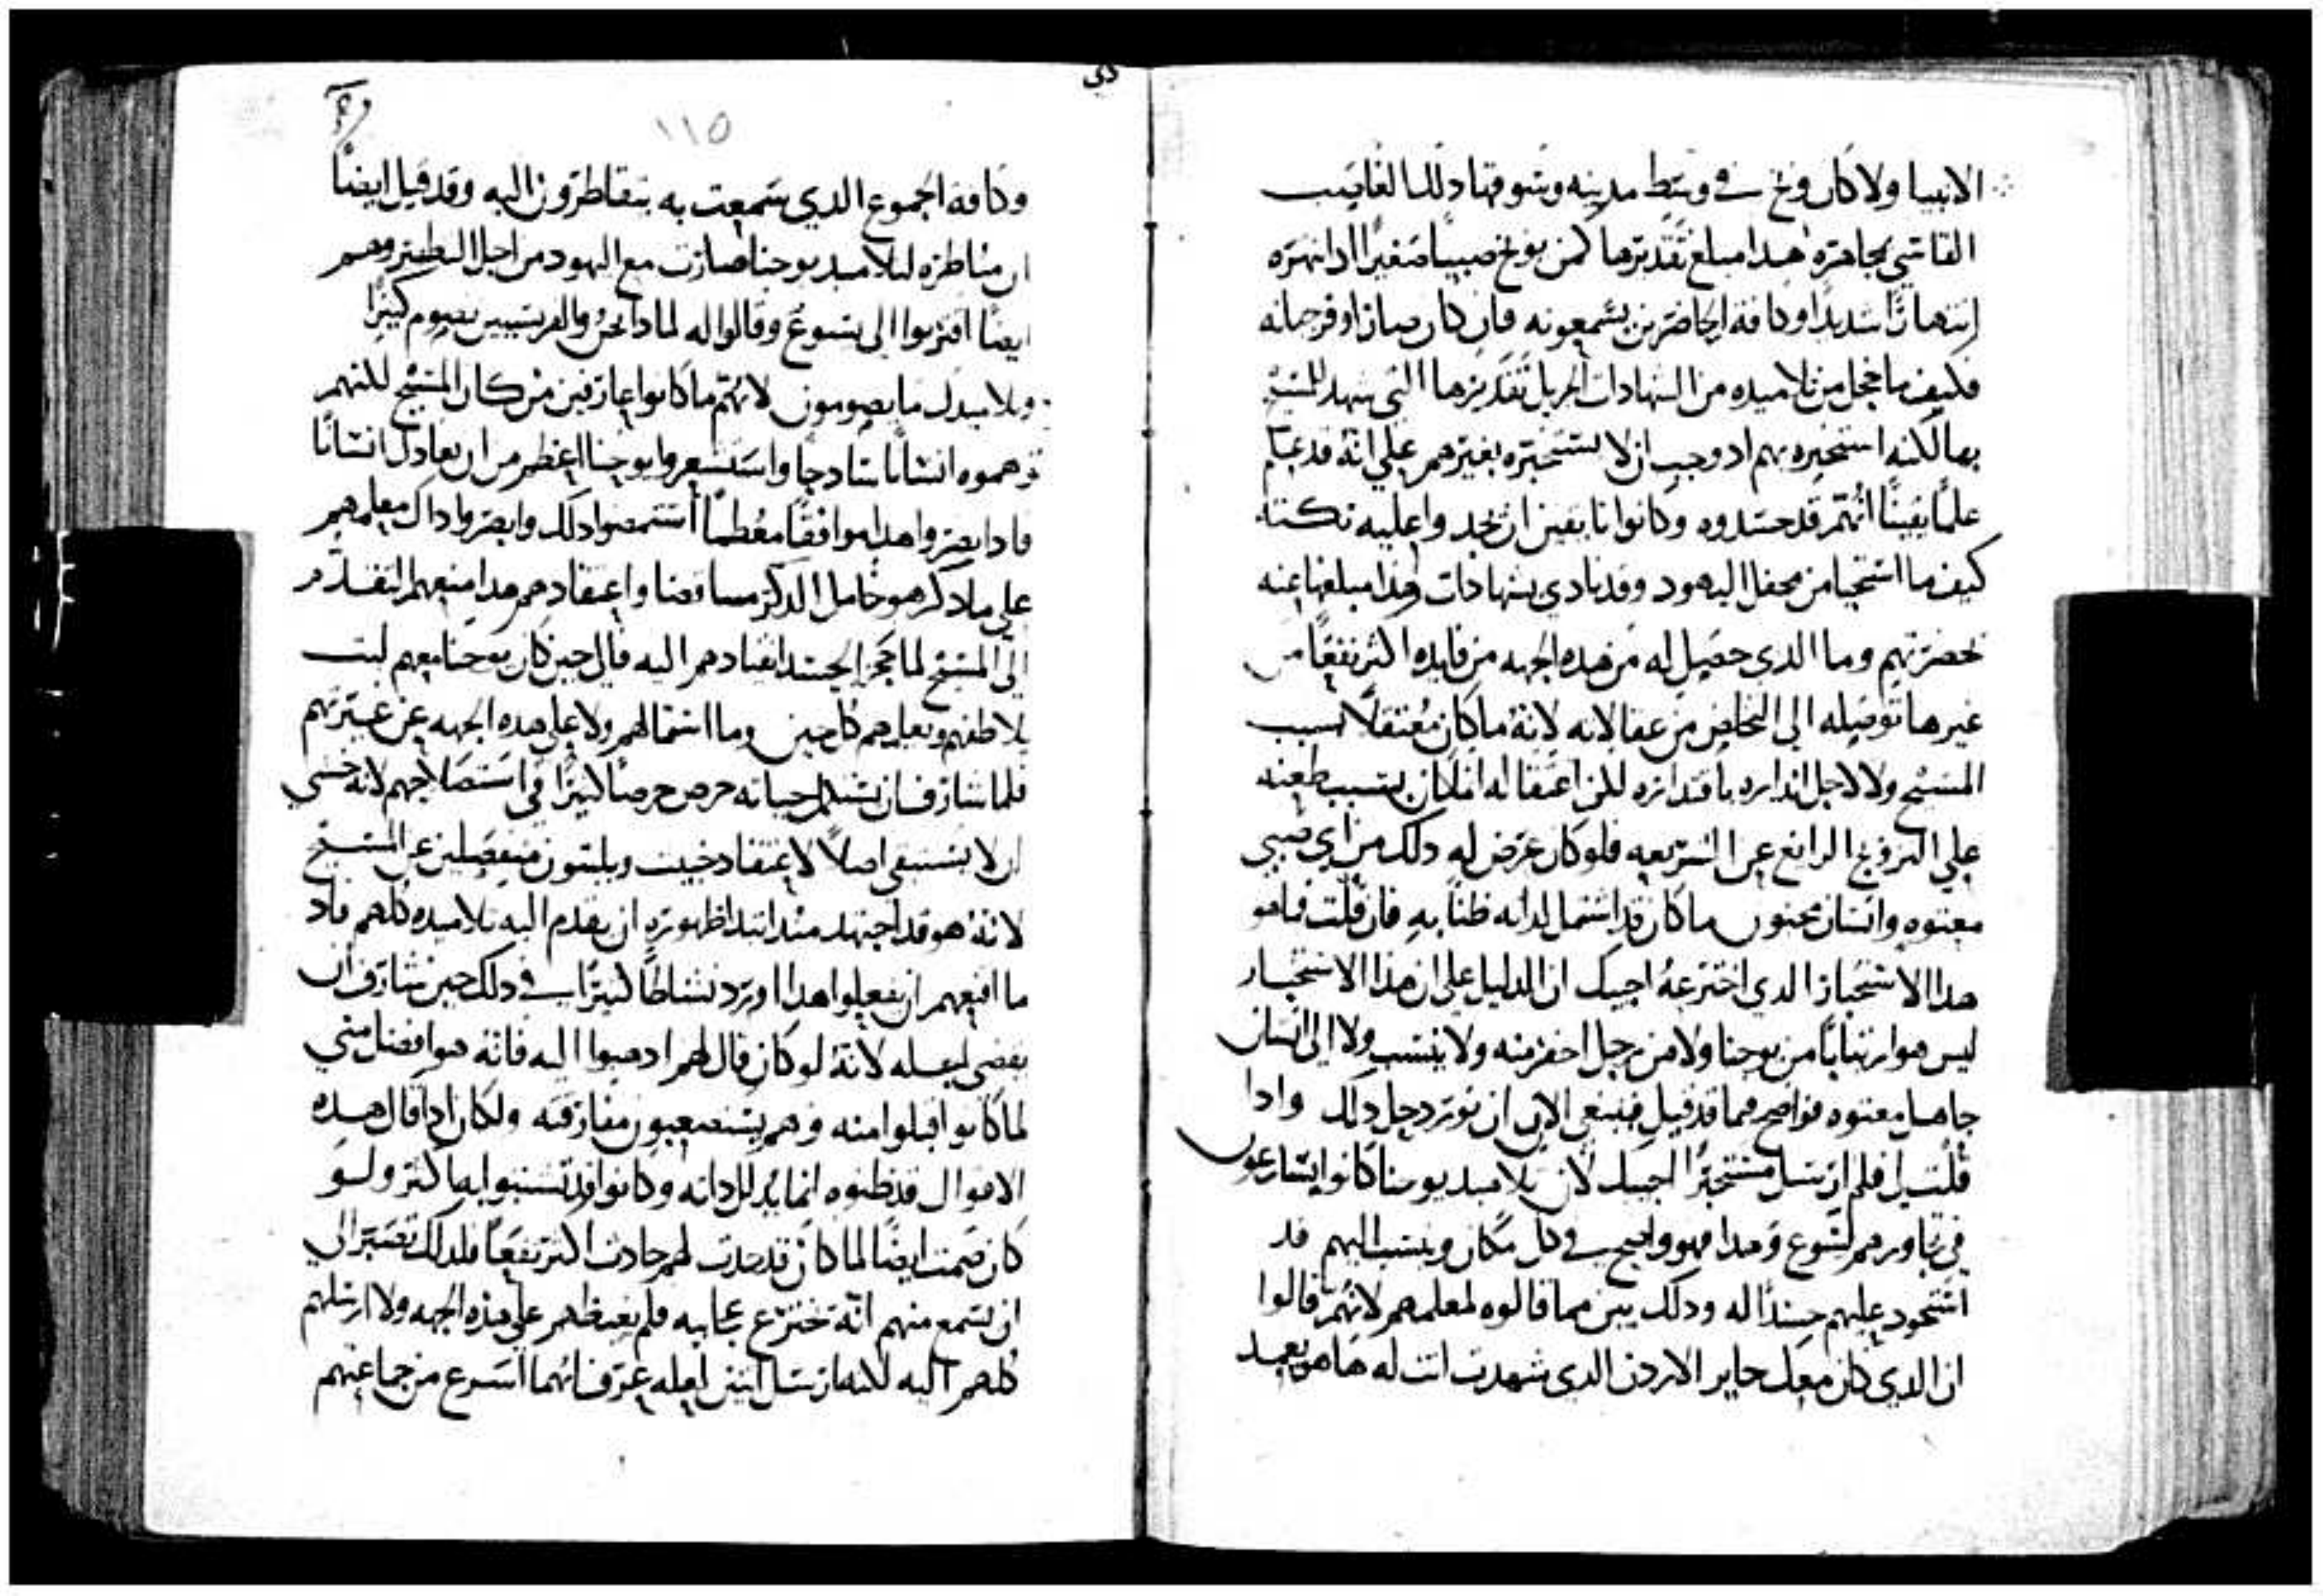 الانبيا ولا كان وبخ في وسط مدينه وسوقها دلك الغاصب
القاسي مجاهرة هدا مبلغ تقديرها كمن يوبخ صبيبا صغيرًا ادا نهره
انتهارًا شديدًا وكافة الحاضرين يسمعونه فان كان صار اوفر جبانه
فكيف ما خجل من تلاميده من الشهادات الجزيل تقديرها التي شهد للمسيح
بها لكنه استخبره بهم اد وجب ان لا يستخبره بغيرهم علي انه قد علم
علمًا يقينًا انهم قد حسدوه وكانوا تايقين ان يجدوا عليه نكته
كيف ما استحيا من محفل اليهود وقد نادي بشهادات هدا مبلغها عنه
بحضرتهم وما الدي حصيل له من هده الجهه من فايده اكثر نفعًا من
غيرها توصيله الي التخلص من عقالاته لانه ما كان معتقلاً بسبب
المسيح ولا لاجل انداره باقتداره لكن اعتقاله انما كان بسبب طعنه
علي التزويج الزايغ عن الشريعه فلو كان عرض له دلك من اي صبي
معتوه وانسان مجنون ما كان قد اشتمل لداته ظنًا به فان قلت فما هو
هدا الاستخبار الدي اخترعه اجيبك ان الدليل علي ان هدا الاستخبار
ليس هو ارتيابًا من يوحنا ولا من رجل احقر منه ولا ينسب ولا الي انسان
جاهل معتوه فواضح مما قد قيل فينبغي الان ان نورد حل دلك وادا
قلت لي فلم ارسل مستخبرًا اجيبك لان تلاميد يوحنا كانوا يتسارعون
في تجاورهم ليسوع وهدا فهو واضح في كل مكان وينسب اليهم قد
استحود عليهم حسدًا له ودلك يبين مما قالوه لمعلمهم لانهم قالوا
ان الدي كان معك جايز الاردن الدي شهدت انت له ها هو يعمد
دي
١١٥
وكافة الجموع الدي سمعت به يتقاطرون اليه وقد قيل ايضًا
ان مناظره لتلاميد يوحنا صارت مع اليهود من اجل التطهير وهم
ايضًا اقتربوا الي يسوع وقالوا له لمادا نحن والفريسيين نصوم كثيرًا
وتلاميدك ما يصومون لانهم ما كانوا عارفين من كان المسيح لكنهم
توهموه انسانًا سادجًا واستشعروا يوحنا اعظم من ان يعادل انسانًا
فاد ابصروا هدا موافقًا معظمًا استمضوا دلك وابصروا داك معلمهم
علي ما دكر هو خامل الدكر مناقضا واعتقادهم هدا منعهم التقدم
الي المسيح لما حجز الحسد انقيادهم اليه فالي حين كان يوحنا معهم لبث
يلاطفهم ويعلمهم كل حين وما استمالهم ولا علي هده الجهه عن غيرتهم
فلما شارف ان يستكمل حياته حرص حرصًا كثيرًا في استصلاحهم لانه خشي
ان لا يستبقي اصلاً لاعتقاد خبيث ويلبثون منفصلين عن المسيح
لانه هو قد اجتهد مند ابتدا ظهوره ان يقدم اليه تلاميده كلهم فاد
ما اقنعهم ان يفعلوا هدا اورد نشاطًا كثيرًا في دلك حين شارف ان
يقضي لعمله لانه لو كان قال لهم ادهبوا اليه فانه هو افضل مني
لما كانوا اقبلوا منه وهم يستصعبون مفارقته ولكان ادا قال هده
الاقوال قد ظنوه انما يدلل داته وكانوا قد تشبثوا به اكثر ولو
كان صمت ايضًا لما كان قد حدث لهم حادث اكثر نفعًا فلدلك تصبر الي
ان يسمع منهم انه يخترع عجايبه فلم يعظهم علي هده الجهه ولا ارسلهم
كلهم اليه لكنه ارسل اثنين لعله عرف انهما اسرع من جماعتهم